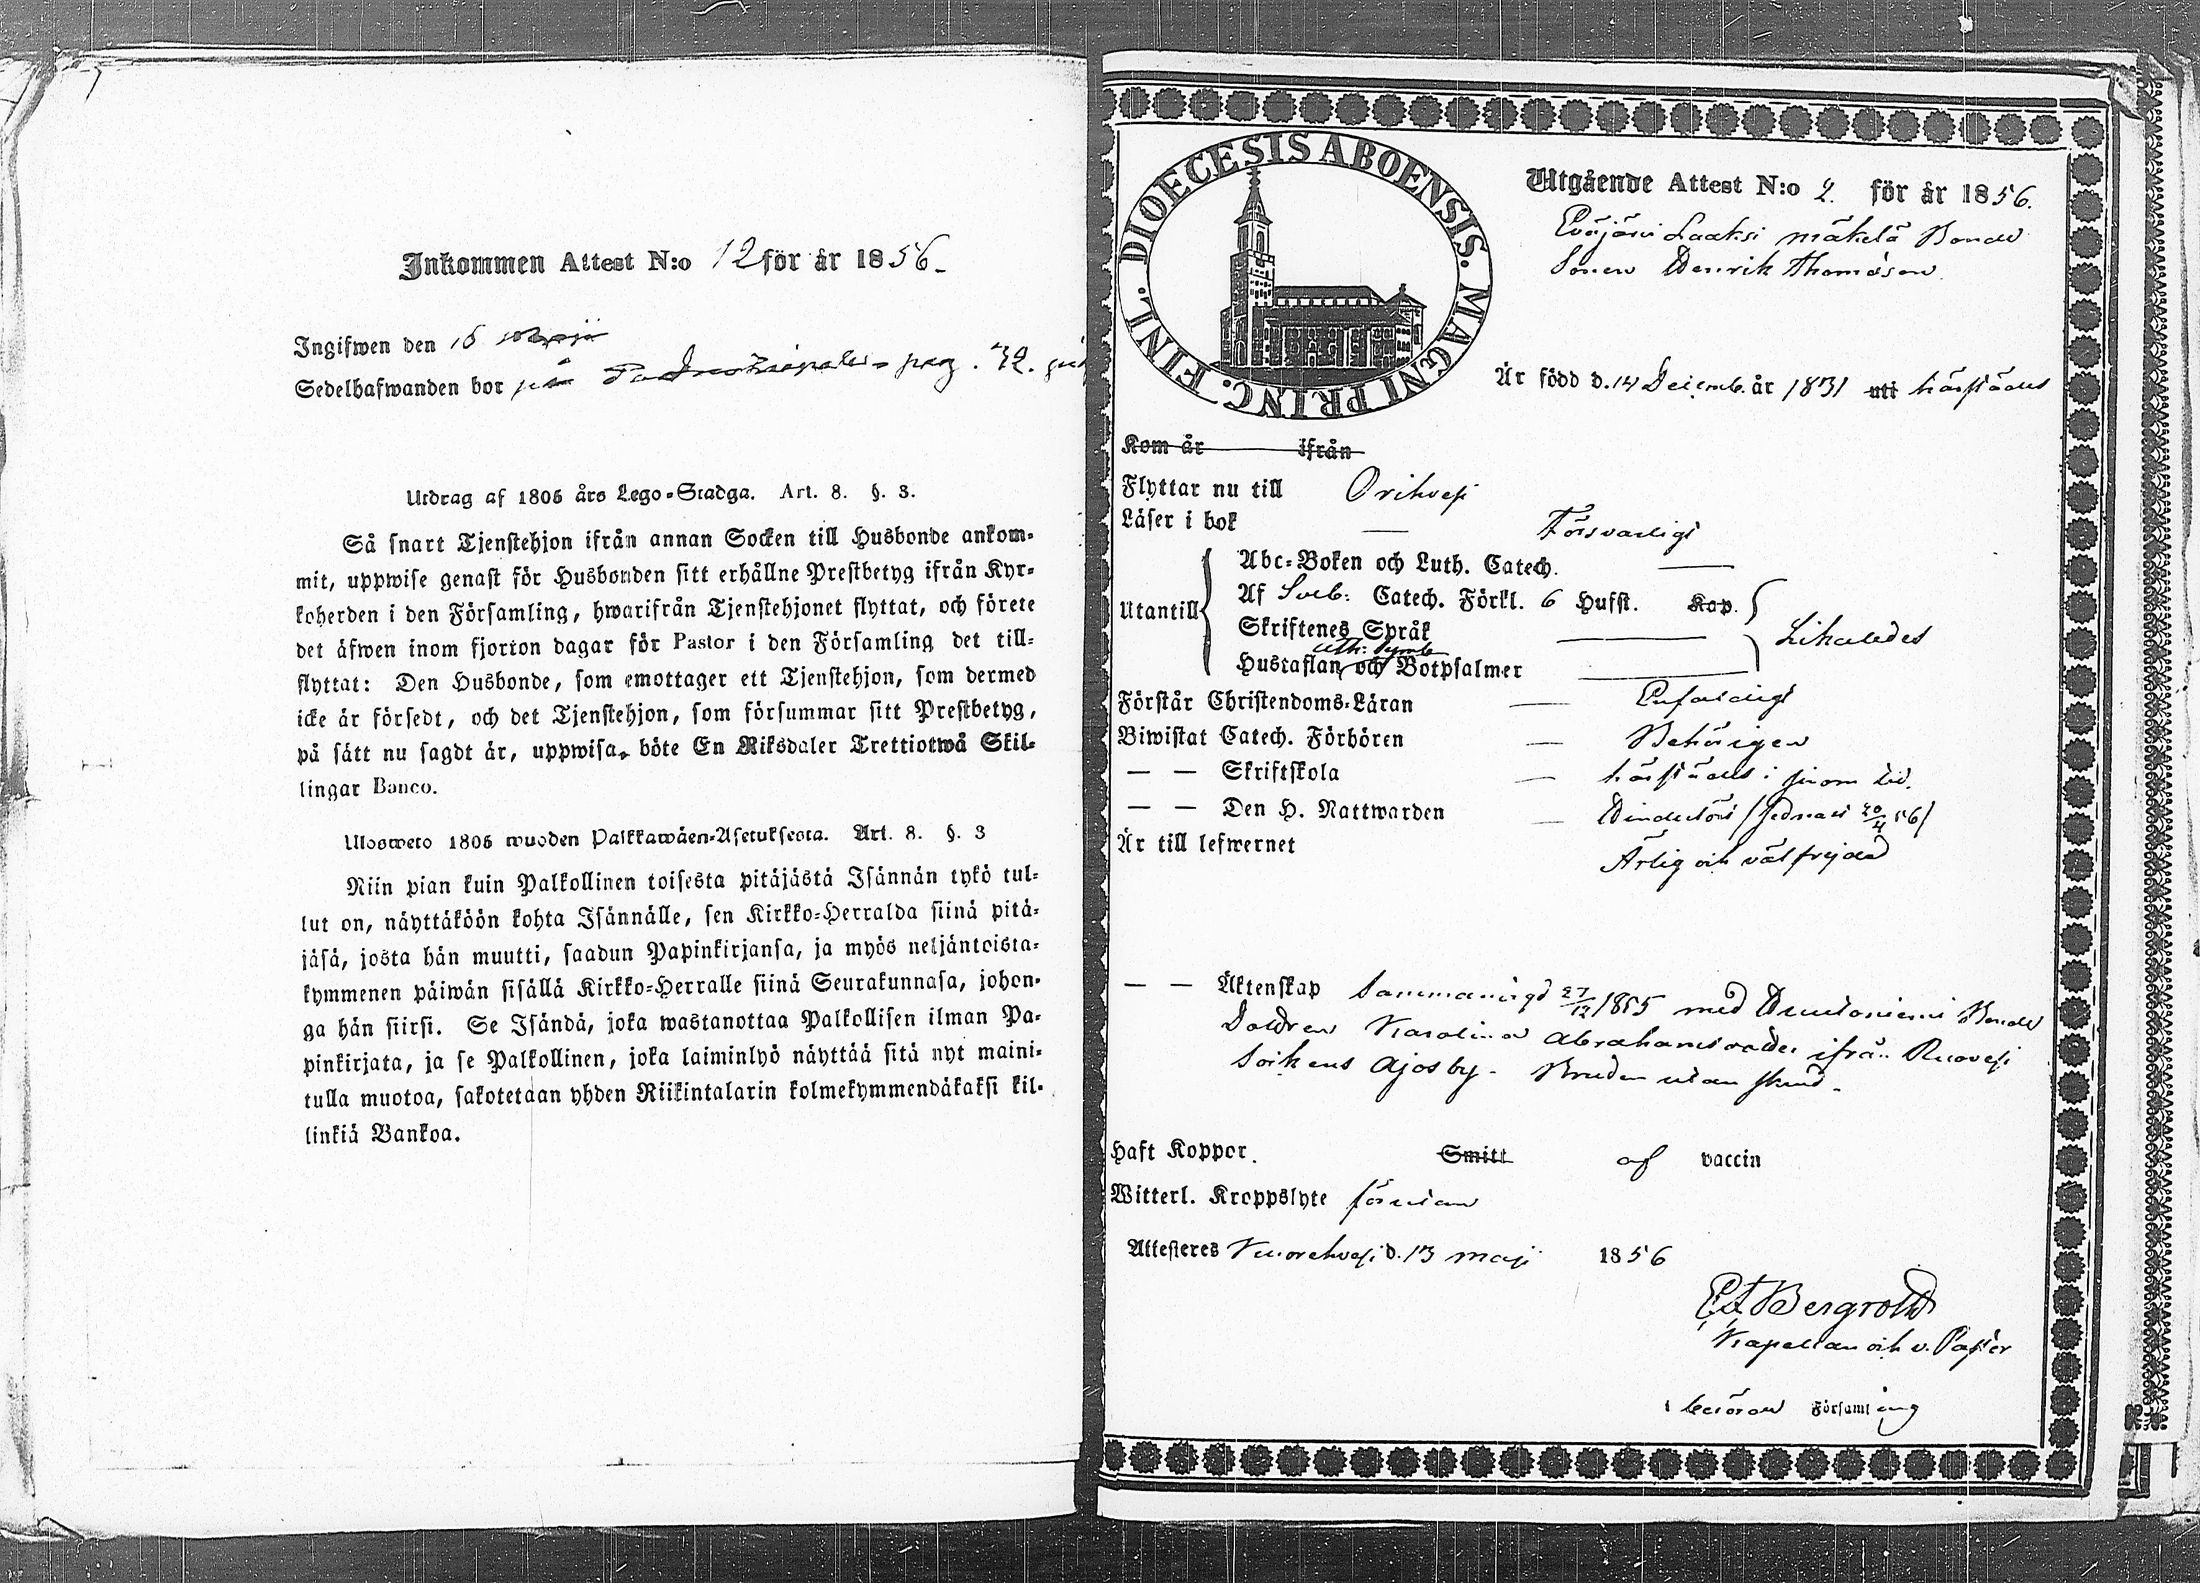 Inkommen Attest N:o 12 för år 1856.
Ingifwen den 16
Sedelhafwanden bor på pag. 72.
Utdrag af 1805 års Lego-Stadga. Art. 8. §. 3.
Så snart Tjenstehjon ifrån annan Socken till Husbonde ankom-
mit, uppwise genast för Husbonden sitt erhållne Prestbetyg ifrån Kyr-
koherden i den Församling, hwarifrån Tjenstehjonet flyttat, och förete
det äfwen inom fjorton dagar för Pastor i den Församling det till-
flyttat: Den Husbonde, som emottager ett Tjenstehjon, som dermed
icke är försedt, och det Tjenstehjon, som försummar sitt Prestbetyg,
på sätt nu sagdt är, uppwisa, böte En Riksdaler Trettiotwå Skil-
lingar Banco.
Ulosweto 1805 wuoden Palkkawäen-Asetuksesta. Art. 8. §. 3
Niin pian kuin Palkollinen toisesta pitäjästä Isännän tykö tul-
lut on, näyttäköön kohta Isännälle, sen Kirkko-Herralda siinä pitä-
jäsä, josta hän muutti, saadun Papinkirjansa, ja myös neljäntoista-
kymmenen päiwän sisällä Kirkko-Herralle siinä Seurakunnasa, johon-
ga hän siirsi. Se Isändä, joka wastanottaa Palkollisen ilman Pa-
pinkirjata, ja se Palkollinen, joka laiminlyö näyttää sitä nyt maini-
tulla muotoa, sakotetaan yhden Riikintalarin kolmekymmendäkaksi kil-
linkiä Bankoa.
DIOECESIS ABOENSIS. MAGNI PRINC. FINL.
Utgående Attest N:o 2. för år 1856.
Laaksi mäkelä Bonde
Sonen Henrik Thomasson
Är född d. 14 Decemb. år 1831 uti härstädes
Kom år ifrån
Flyttar nu till Orihvesi
Läser i bok — Försvarligt
Utantill
Abc-Boken och Luth. Catech. —
Af Sveb: Catech. Förkl. 6 Hufst. Kap.
Skriftenes Språk — Likaledes
Ath: Symb
Hustaflan och Botpsalmer —
Förstår Christendoms-Läran — Enfaldigt
Biwistat Catech. Förhören — Behörigen
— — Skriftskola — härstädes i sinom tid.
— — Den H. Nattwarden — Hindelös (sednast 20/4 56)
Är till lefwernet Ärlig och välfrejdad
— — Äktenskap Sammanvigd 27/12 1855 med Bonde
Dottren Karolina Abrahamsdotter ifrån Ruovesi
Sockens Ajosby. Bruden utan
Haft Koppor. Smitt af vaccin
Witterl. Kroppslyte förutan
Attesteres Kuorehvesi d. 13 maji 1856
Bergroth
Kapellan och v. Pastor
i beröran Församling